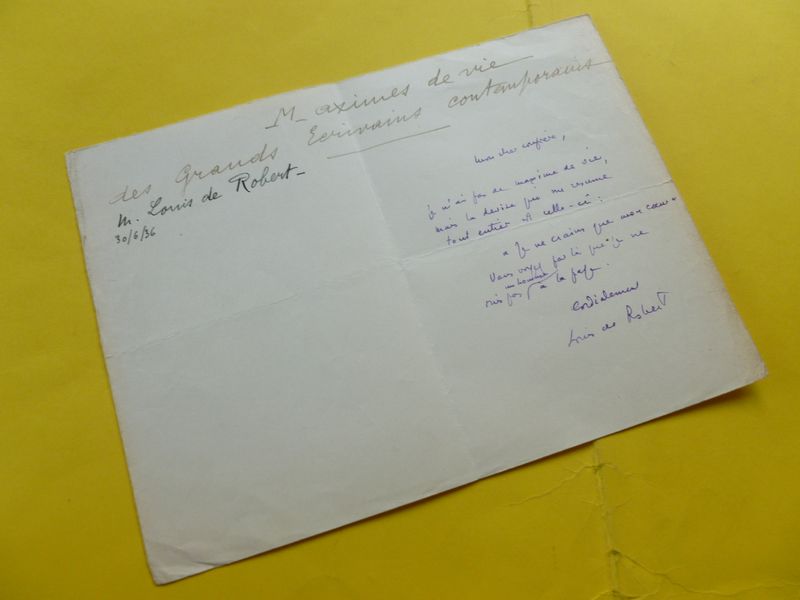 Maximes de vie
des Grands Ecrivains contemporains
M. Louis de Robert
30/6/36
Mon cher confrère,
Je n'ai pas de maxime de vie,
mais la devise qui me résume
tout entier est celle-ci :
« Je ne crains que mon cœur »
Vous voyez par là que je ne
un homme
suis pas à la page.
Cordialement
Louis de Robert